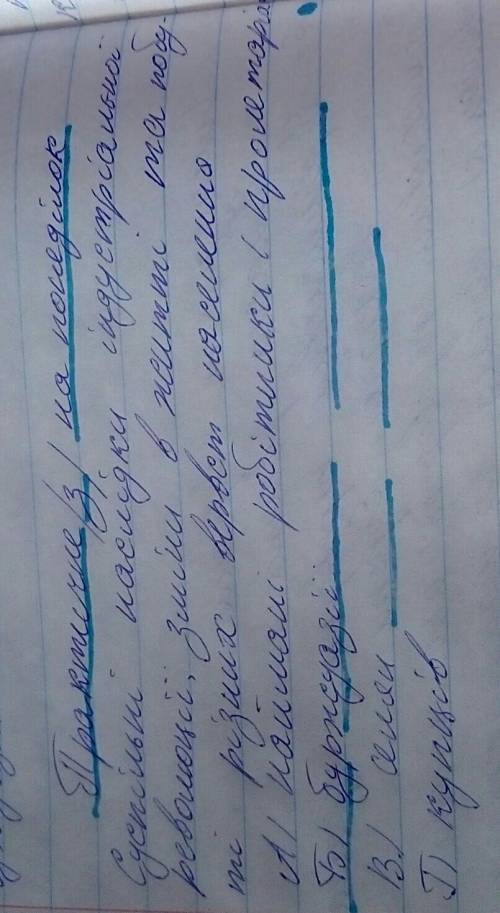 Практичне /з/ на понеділок
Суспільні наслідки індустріальної
революції; зміни в житті та побу-
ті різних верств населення
А/ наймані робітники ( пролетаріа
Б/ буржуазії
В/ селян
Г) купців